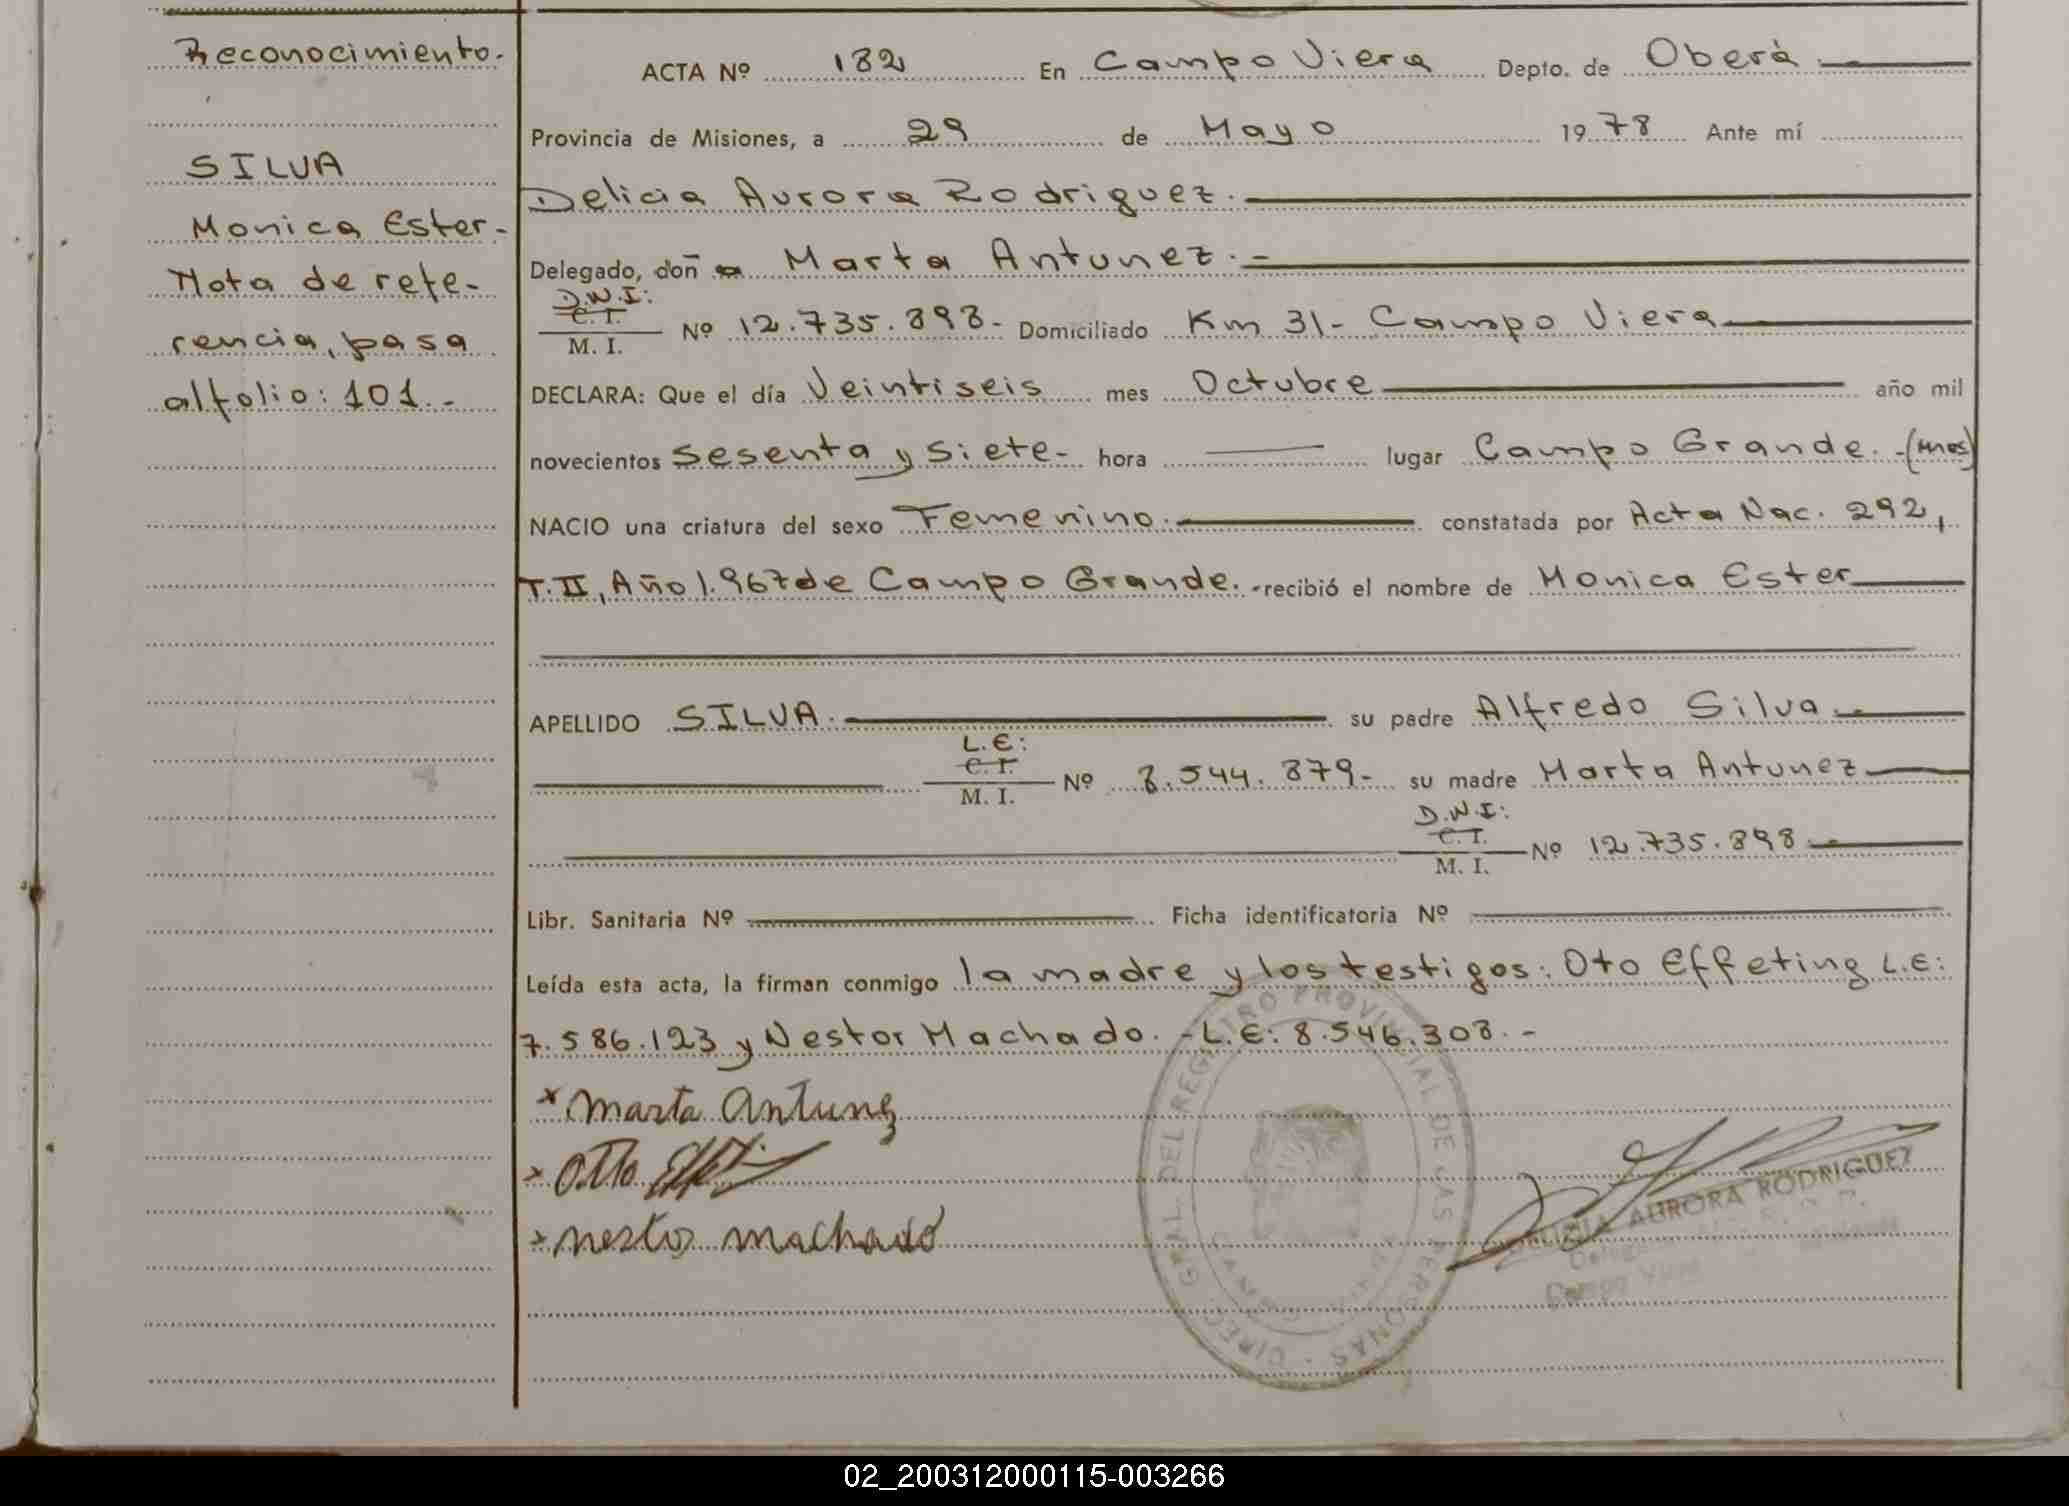 Reconocimiento.
SILVA
Monica Ester-
Nota de refe-
rencia, pasa
al folio: 101.-
ACTA Nº 182 En Campo Viera Depto. de Oberá
Provincia de Misiones, a 29 de Mayo 1978 Ante mí
Delicia Aurora Rodriguez.
Delegado, doña Marta Antunez.-
D.N.I:
C. I.
M. I. Nº 12.735.898- Domiciliado Km 31- Campo Viera
DECLARA: Que el día Veintiseis mes Octubre año mil
novecientos sesenta y siete- hora lugar Campo Grande.-(Mnes)
NACIO una criatura del sexo Femenino. constatada por Acta Nac. 292,
T.II, Año 1.967 de Campo Grande.- recibió el nombre de Monica Ester
APELLIDO SILVA. su padre Alfredo Silva.-
L.E:
C. I.
M. I. Nº 8.544.879- su madre Marta Antunez
D.N.I:
C. I.
M. I. Nº 12.735.898.-
Libr. Sanitaria Nº Ficha identificatoria Nº
Leída esta acta, la firman conmigo la madre y los testigos: Oto Effeting L.E:
7.586.123 y Nestor Machado.-L.E: 8.546.308.-
x Marta Antunez
x Otto
x nestor machado
DIREC. GRAL. DEL REGISTRO PROVINCIAL DE LAS PERSONAS
DELICIA AURORA RODRIGUEZ
Campo Viera
02_200312000115-003266